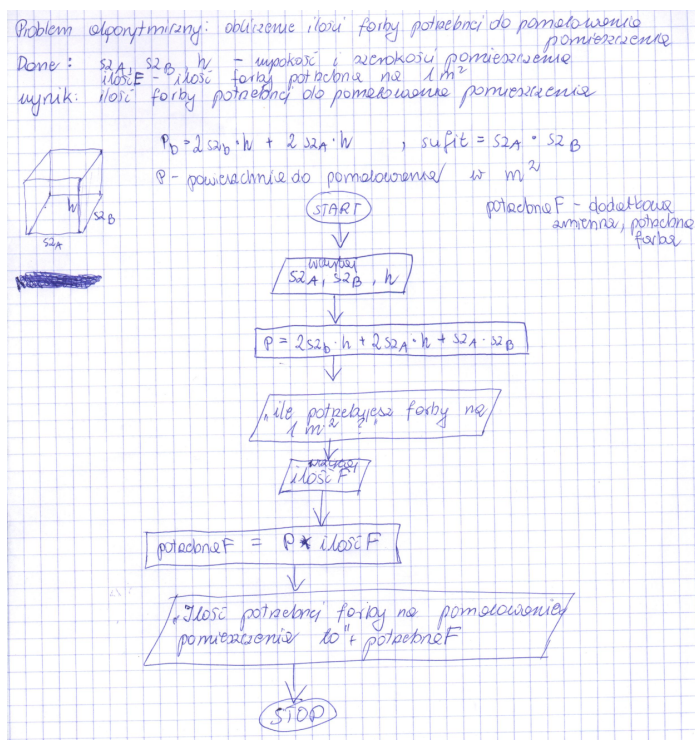 Problem algorytmiczny: obliczenie ilości farby potrzebnej do pomalowania
pomieszczenia
Dane: szA, szB, h - wysokość i szerokości pomieszczenia
ilośćF - ilość farby potrzebna na 1m²
wynik: ilość farby potrzebnej do pomalowania pomieszczenia
Pb = 2szb·h + 2szA·h , sufit = szA · szB
P - powierzchnia do pomalowania w m²
h
szB
szA
potrzebnaF - dodatkowa
zmienna, potrzebna
farba
START
wczytaj
szA, szB, h
P = 2szb·h + 2szA·h + szA·szB
"ile potrzebujesz farby na
1 m² ?"
wczytaj
ilośćF
potrzebnaF = P * ilośćF
"Ilość potrzebnej farby na pomalowanie
pomieszczenia to" + potrzebnaF
STOP